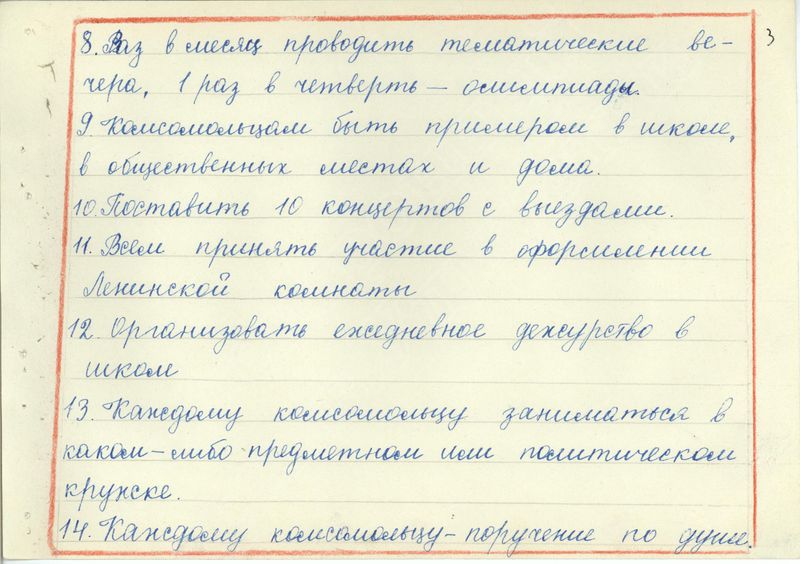 3
8. Раз в месяц проводить тематические ве-
чера, 1 раз в четверть — олимпиады.
9. Комсомольцам быть примером в школе,
в общественных местах и дома.
10. Поставить 10 концертов с выездами.
11. Всем принять участие в оформлении
Ленинской комнаты
12. Организовать ежедневное дежурство в
школе
13. Каждому комсомольцу заниматься в
каком-либо предметном или политическом
кружке.
14. Каждому комсомольцу - поручение по душе.